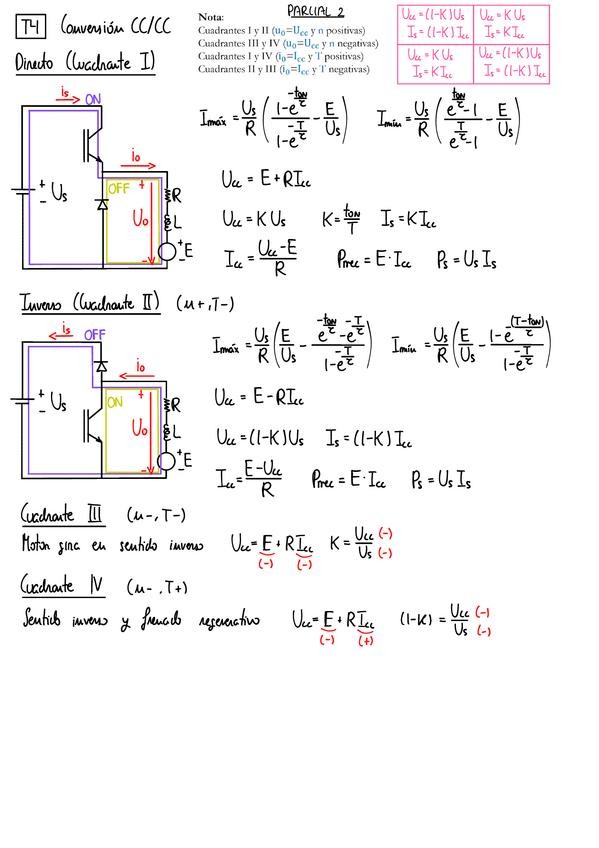 T4 Conversión CC/CC
PARCIAL 2
Nota:
Cuadrantes I y II (u₀=Ucc y n positivas)
Cuadrantes III y IV (u₀=Ucc y n negativas)
Cuadrantes I y IV (i₀=Icc y T positivas)
Cuadrantes II y III (i₀=Icc y T negativas)
Ucc = (1-K)Us
Is = (1-K)Icc
Ucc = K Us
Is = KIcc
Ucc = K Us
Is = KIcc
Ucc = (1-K)Us
Is = (1-K)Icc
Directo (Cuadrante I)
is ON
io
+ Us -
OFF
+ Uo -
R
L
+ E -
Imáx = Us/R ( (1-e^(-tON/τ))/(1-e^(-T/τ)) - E/Us )
Imín = Us/R ( (e^(tON/τ)-1)/(e^(T/τ)-1) - E/Us )
Ucc = E+RIcc
Ucc = K Us K = tON/T Is = KIcc
Icc = (Ucc-E)/R Pmec = E·Icc Ps = Us Is
Inverso (Cuadrante II) (M+,T-)
is OFF
io
+ Us -
ON
+ Uo -
R
L
+ E -
Imáx = Us/R ( E/Us - (e^(-tON/τ)-e^(-T/τ))/(1-e^(-T/τ)) )
Imín = Us/R ( E/Us - (1-e^(-(T-tON)/τ))/(1-e^(-T/τ)) )
Ucc = E-RIcc
Ucc = (1-K)Us Is = (1-K)Icc
Icc = (E-Ucc)/R Pmec = E·Icc Ps = Us Is
Cuadrante III (M-,T-)
Motor gira en sentido inverso Ucc = E + RIcc K = Ucc/Us (-) (-)
(-) (-)
Cuadrante IV (M-,T+)
Sentido inverso y frenado regenerativo Ucc = E + RIcc (1-K) = Ucc/Us (-) (-)
(-) (+)